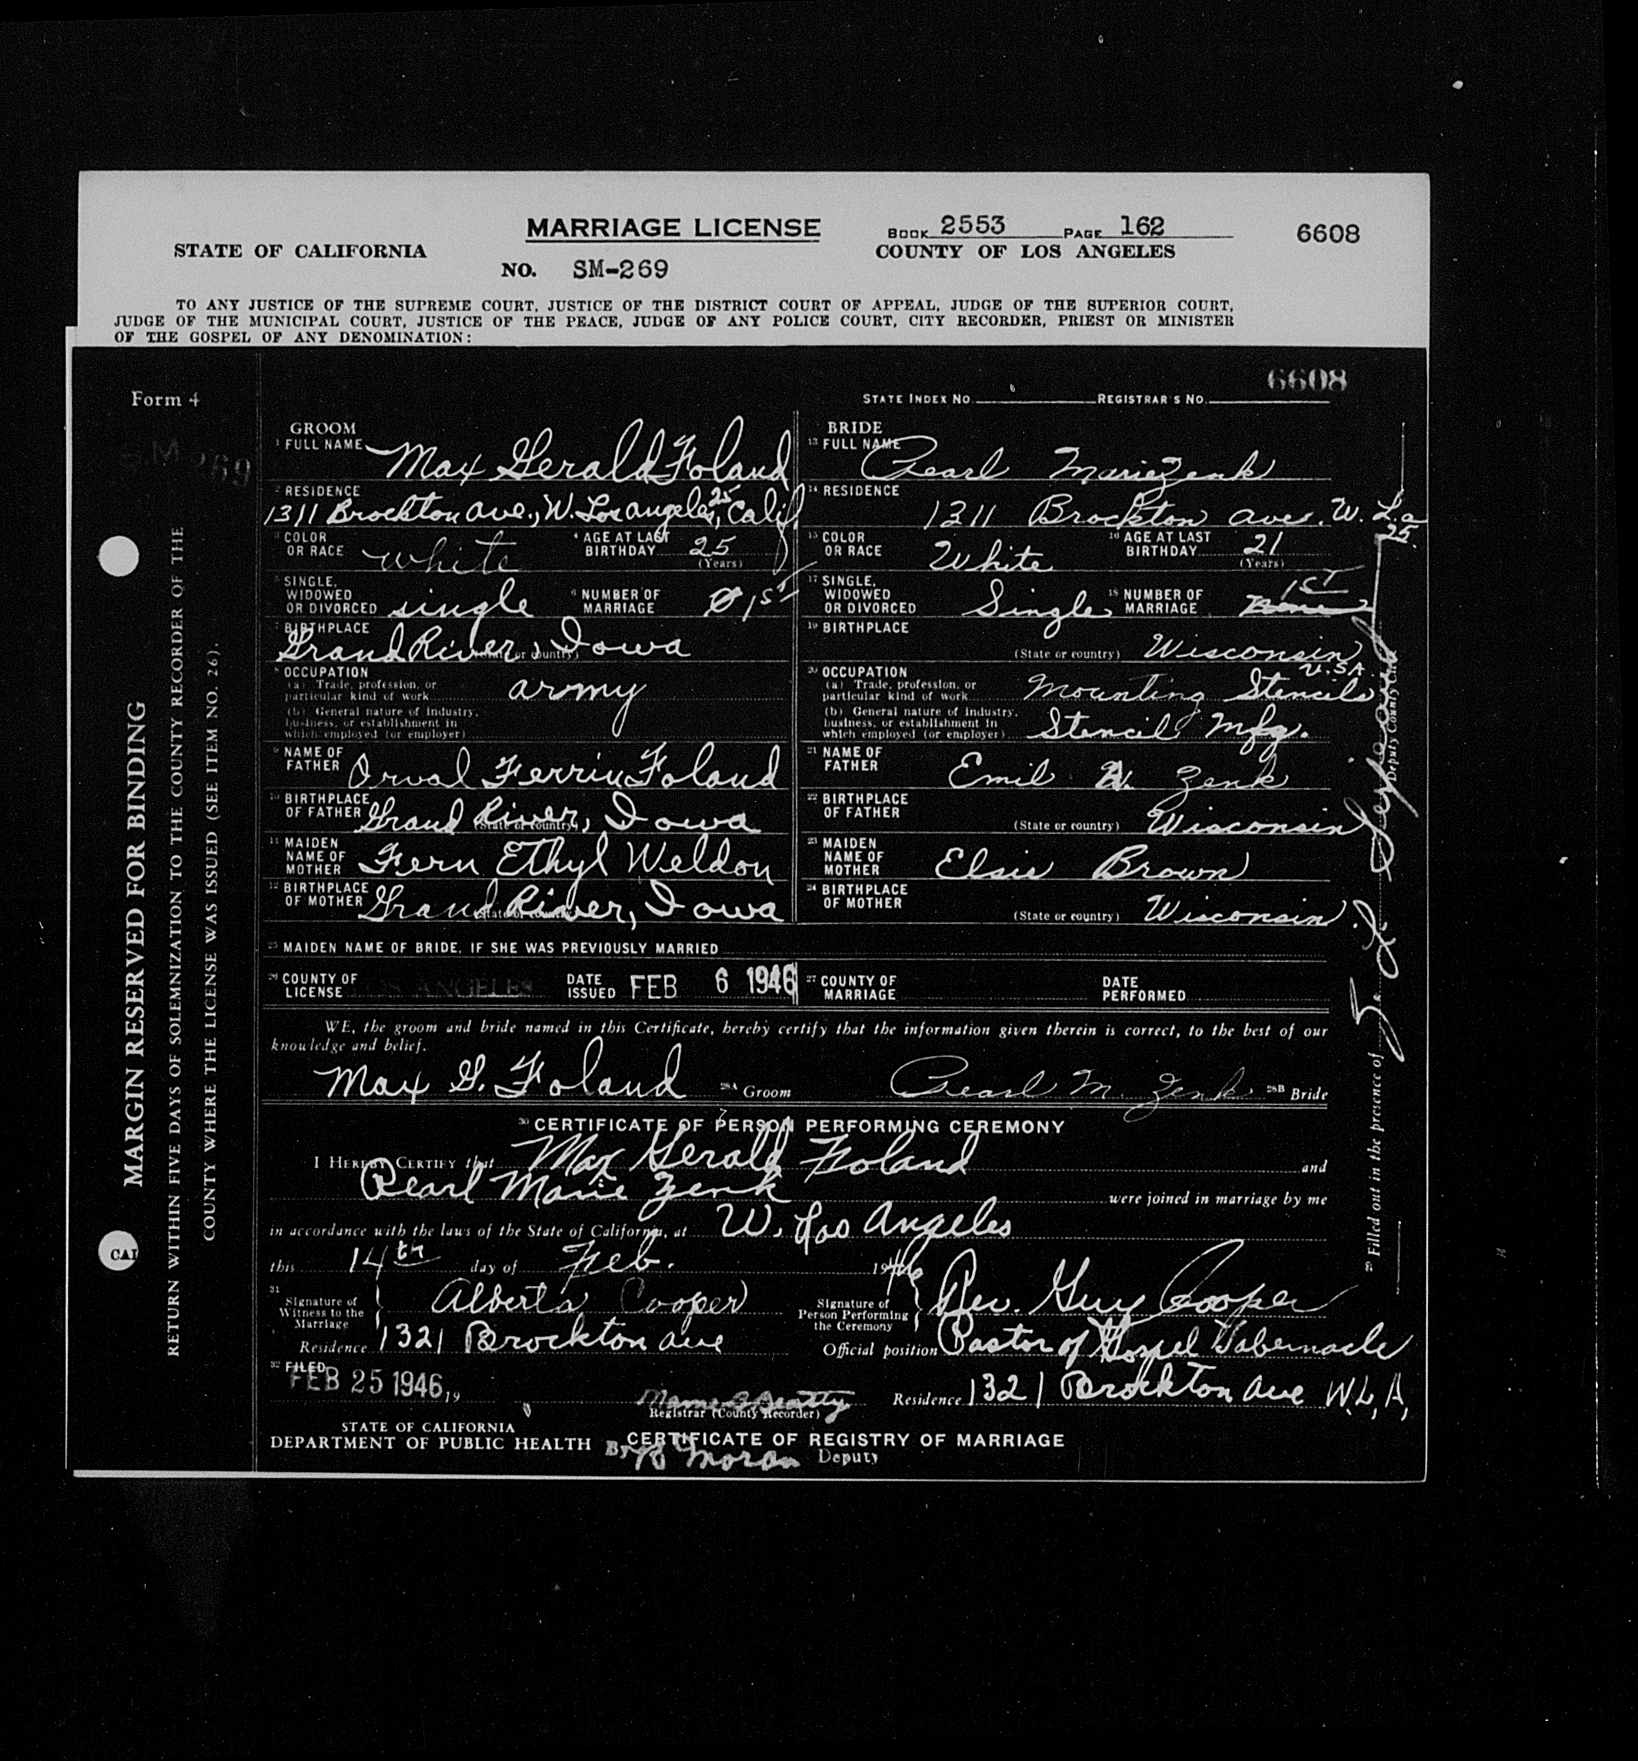 MARRIAGE LICENSE
BOOK 2553 PAGE 162
6608
STATE OF CALIFORNIA
COUNTY OF LOS ANGELES
NO. SM-269
TO ANY JUSTICE OF THE SUPREME COURT, JUSTICE OF THE DISTRICT COURT OF APPEAL, JUDGE OF THE SUPERIOR COURT,
JUDGE OF THE MUNICIPAL COURT, JUSTICE OF THE PEACE, JUDGE OF ANY POLICE COURT, CITY RECORDER, PRIEST OR MINISTER
OF THE GOSPEL OF ANY DENOMINATION:
Form 4
SM 269
6608
STATE INDEX NO. REGISTRAR'S NO.
MARGIN RESERVED FOR BINDING
RETURN WITHIN FIVE DAYS OF SOLEMNIZATION TO THE COUNTY RECORDER OF THE
COUNTY WHERE THE LICENSE WAS ISSUED (SEE ITEM NO. 26).
GROOM
1 FULL NAME Max Gerald Foland
2 RESIDENCE
1311 Brockton Ave., W. Los Angeles, 25 Calif
3 COLOR OR RACE White
4 AGE AT LAST BIRTHDAY 25 (Years)
5 SINGLE, WIDOWED OR DIVORCED single
6 NUMBER OF MARRIAGE 0 1st
7 BIRTHPLACE Grand River, Iowa
(State or country)
8 OCCUPATION
(a) Trade, profession, or particular kind of work army
(b) General nature of industry, business, or establishment in which employed (or employer)
9 NAME OF FATHER Orval Ferrin Foland
10 BIRTHPLACE OF FATHER Grand River, Iowa
(State or country)
11 MAIDEN NAME OF MOTHER Fern Ethyl Weldon
12 BIRTHPLACE OF MOTHER Grand River, Iowa
(State or country)
BRIDE
13 FULL NAME Pearl Marie Zenk
14 RESIDENCE
1311 Brockton Ave. W. L.a 25.
15 COLOR OR RACE White
16 AGE AT LAST BIRTHDAY 21 (Years)
17 SINGLE, WIDOWED OR DIVORCED Single
18 NUMBER OF MARRIAGE None 1ST
19 BIRTHPLACE
(State or country) Wisconsin
U.S.A.
20 OCCUPATION
(a) Trade, profession, or particular kind of work Mounting Stencils
(b) General nature of industry, business, or establishment in which employed (or employer) Stencil Mfg.
21 NAME OF FATHER Emil A. Zenk
22 BIRTHPLACE OF FATHER (State or country) Wisconsin
23 MAIDEN NAME OF MOTHER Elsie Brown
24 BIRTHPLACE OF MOTHER (State or country) Wisconsin
25 MAIDEN NAME OF BRIDE, IF SHE WAS PREVIOUSLY MARRIED
26 COUNTY OF LICENSE LOS ANGELES DATE ISSUED FEB 6 1946
27 COUNTY OF MARRIAGE DATE PERFORMED
WE, the groom and bride named in this Certificate, hereby certify that the information given therein is correct, to the best of our
knowledge and belief.
Max G. Foland 28A Groom Pearl M. Zenk 28B Bride
29 Filled out in the presence of
Deputy County Clerk
30 CERTIFICATE OF PERSON PERFORMING CEREMONY
I HEREBY CERTIFY that Max Gerald Foland and
Pearl Marie Zenk were joined in marriage by me
in accordance with the laws of the State of California, at W. Los Angeles
this 14th day of Feb. 1946
31 Signature of Witness to the Marriage Alberta Cooper
Signature of Person Performing the Ceremony Rev. Guy Cooper
Residence 1321 Brockton Ave
Official position Pastor of Gospel Tabernacle
32 FILED
FEB 25 1946, 19
Mame B Beatty
Registrar (County Recorder)
Residence 1321 Brockton Ave W.L.A,
STATE OF CALIFORNIA
DEPARTMENT OF PUBLIC HEALTH
CERTIFICATE OF REGISTRY OF MARRIAGE
By Moran Deputy
CAL